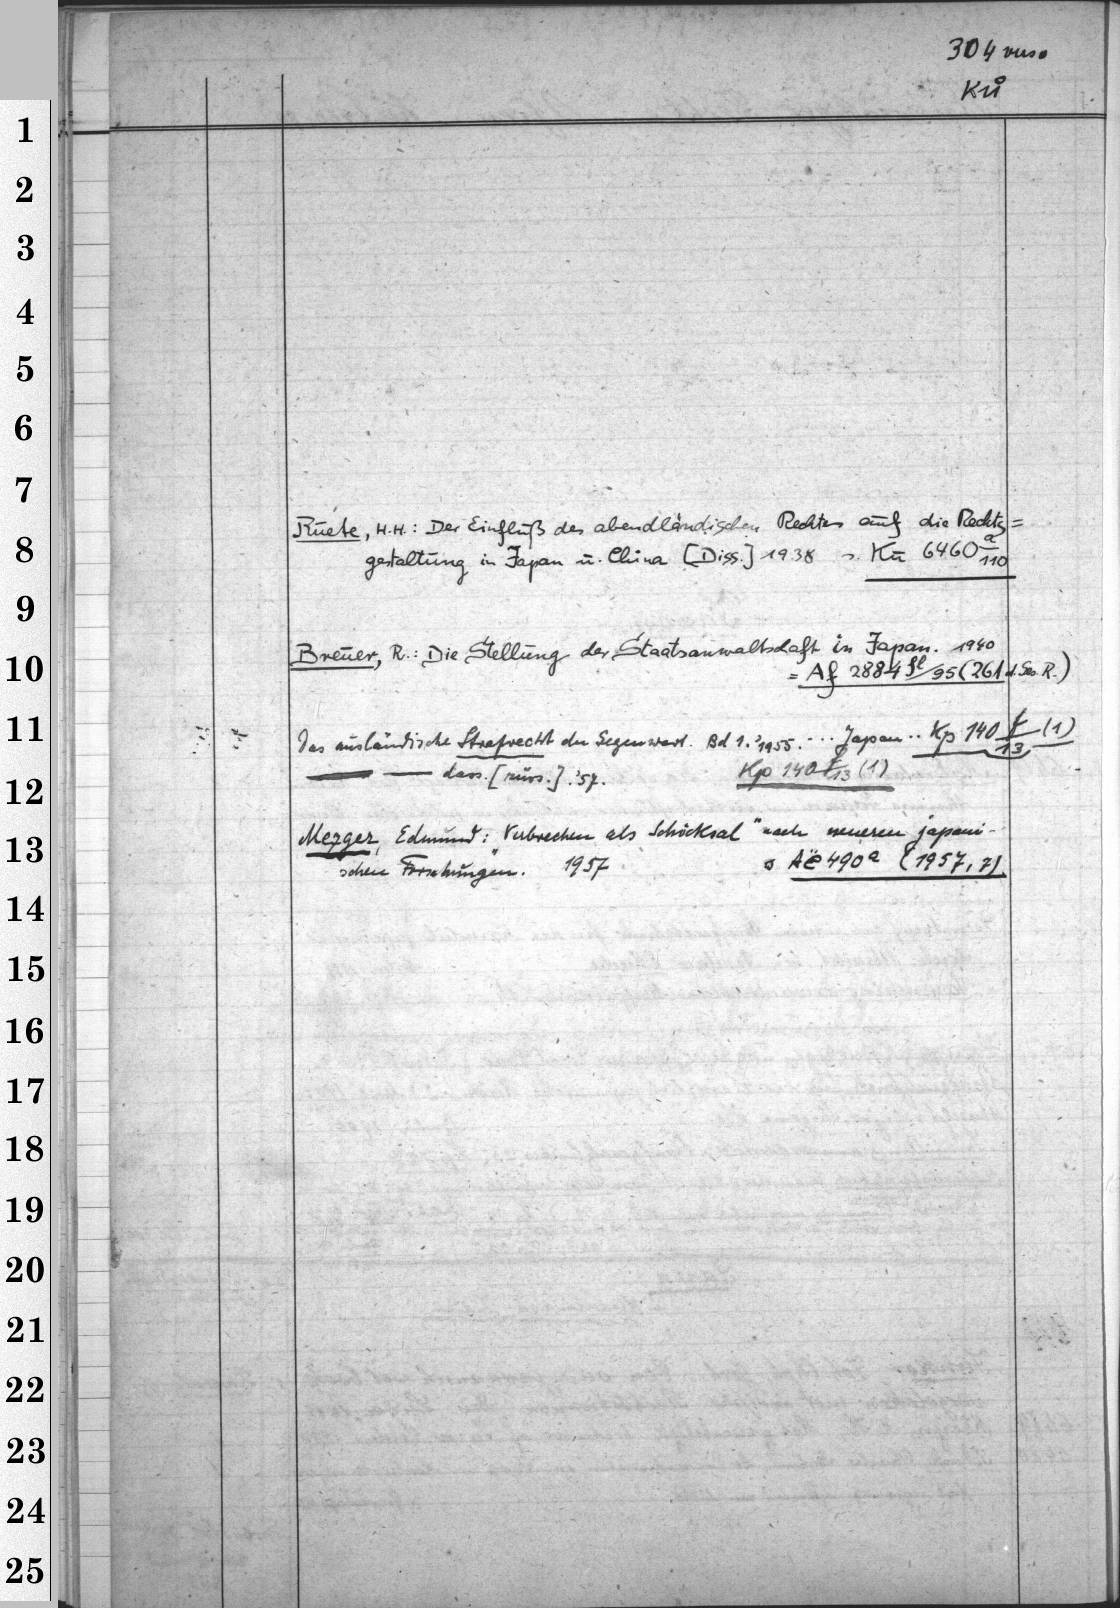 304 verso
Ků
1
2
3
4
5
6
7
Ruete, H.H.: Der Einfluß des abendländischen Rechtes auf die Rechts=
8
gestaltung in Japan u. China [Diss.] 1938 s. Kū 6460 a/110
9
Breuer, R.: Die Stellung der Staatsanwaltschaft in Japan. 1940
10
= Af 2884 fl/95 (261 d. Ges. R.)
11
Das ausländische Strafrecht der Gegenwart. Bd 1. '1955. ... Japan .. Kp 140 f/13 (1)
12
— — dass. [russ.] '57. Kp 140 f/13 (1)
13
Mezger, Edmund: "Verbrechen als Schicksal" nach neueren japani-
schen Forschungen. 1957 Aë 490a (1957, 7)
14
15
16
17
18
19
20
21
22
23
24
25